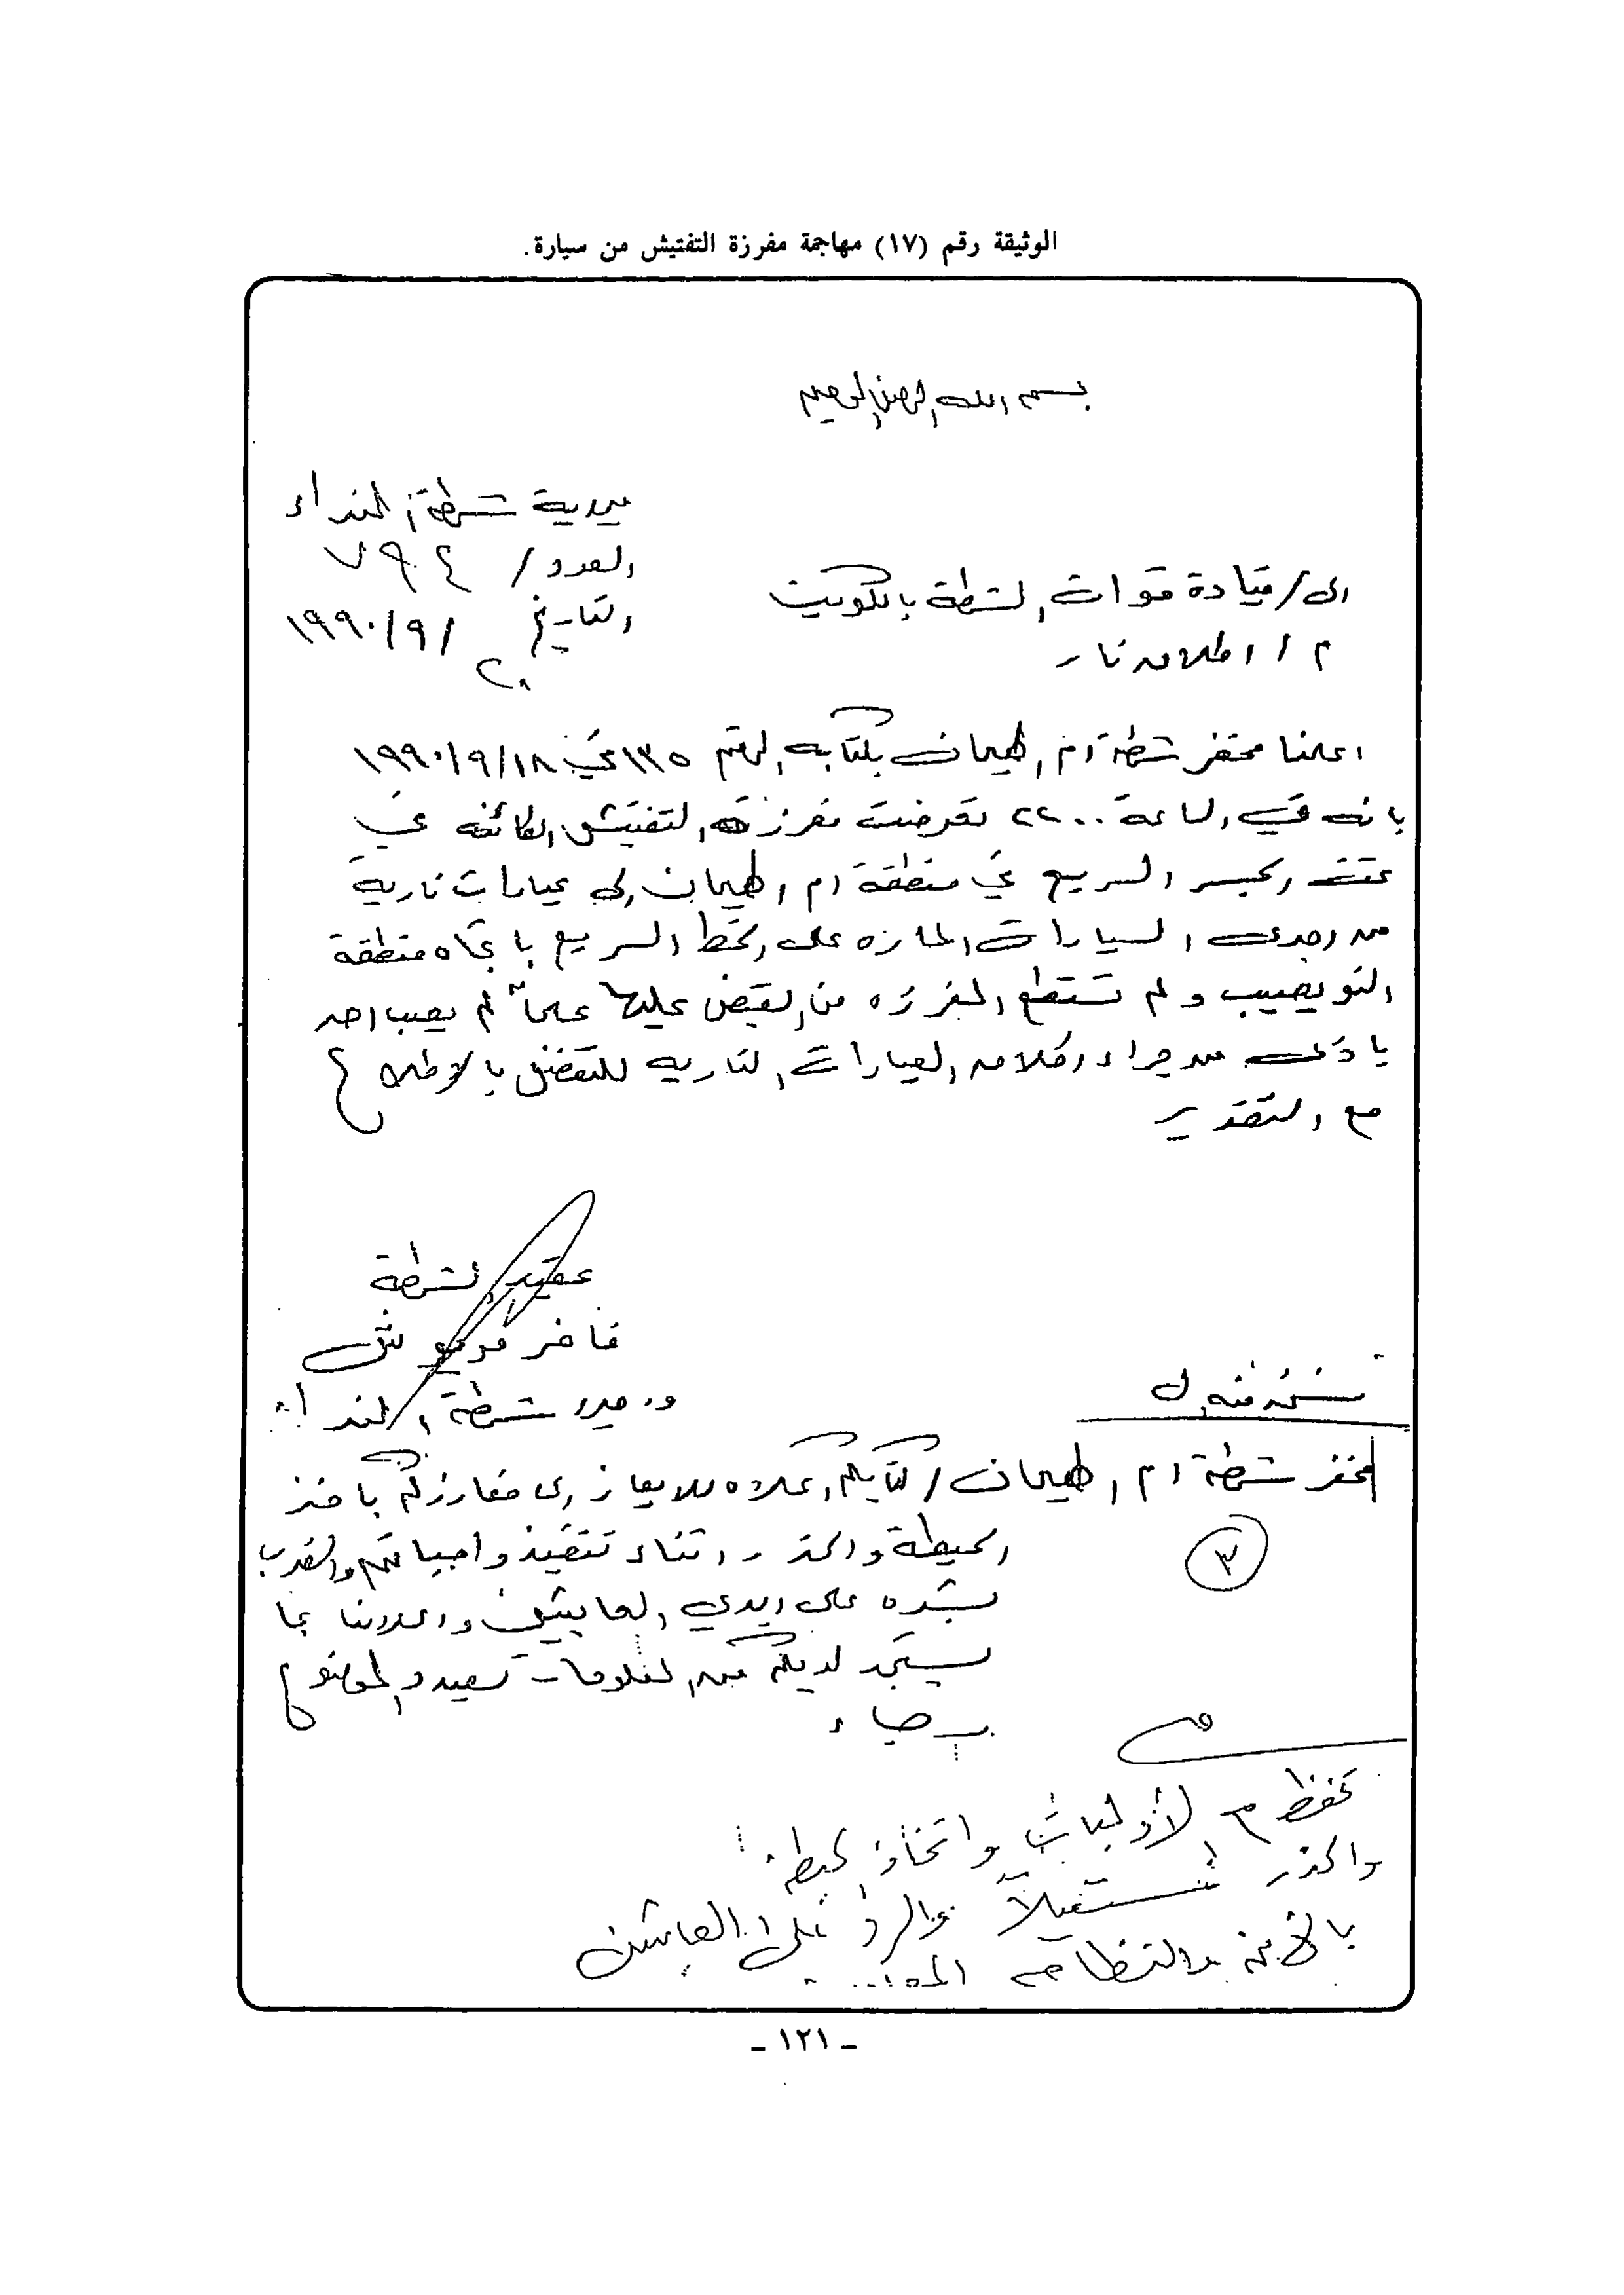 الوثيقة رقم (١٧) مهاجمة مفرزة التفتيش من سيارة.
بسم الله الرحمن الرحيم
مديرية شرطة النداء
العدد / ٧٩٤
التاريخ ٢٠ / ٩ / ١٩٩٠
الى / قيادة قوات الشرطة بالكويت
م / اطلاق نار
اعلمنا مخفر شرطة ام الهيمان بكتابه المرقم ١٣٥ في ١٩٩٠/٩/١٨
بانه في الساعة ٢٢٠٠ تعرضت مفرزة التفتيش الكائنه في
الجسر السريع في منطقة ام الهيمان الى عيارات نارية
من احدى السيارات الماره على الخط السريع باتجاه منطقة
النويصيب ولم تستطع المفرزه من القبض عليها علماً لم يصب احد
باذى من جراء اطلاق العيارات الناريه للتفضل بالاطلاع
مع التقدير
عقيد الشرطة
فاخر
و. مدير شرطة النداء
نسخه منه الى
مخفر شرطة ام الهيمان / كتابكم اعلاه للايعاز الى مفارزكم باخذ
الحيطة والحذر اثناء تنفيذ واجباتهم والضرب
بشده على ايدي العابثين واعلامنا بما
يستجد لديكم من معلومات تفيد الموضوع
رجاء
٣
تحفظ مع الأوليات واتخاذ الحيطة
والحذر مستقبلاً والرد على العابثين
بالأمن والنظام
ـ ١٢١ ـ